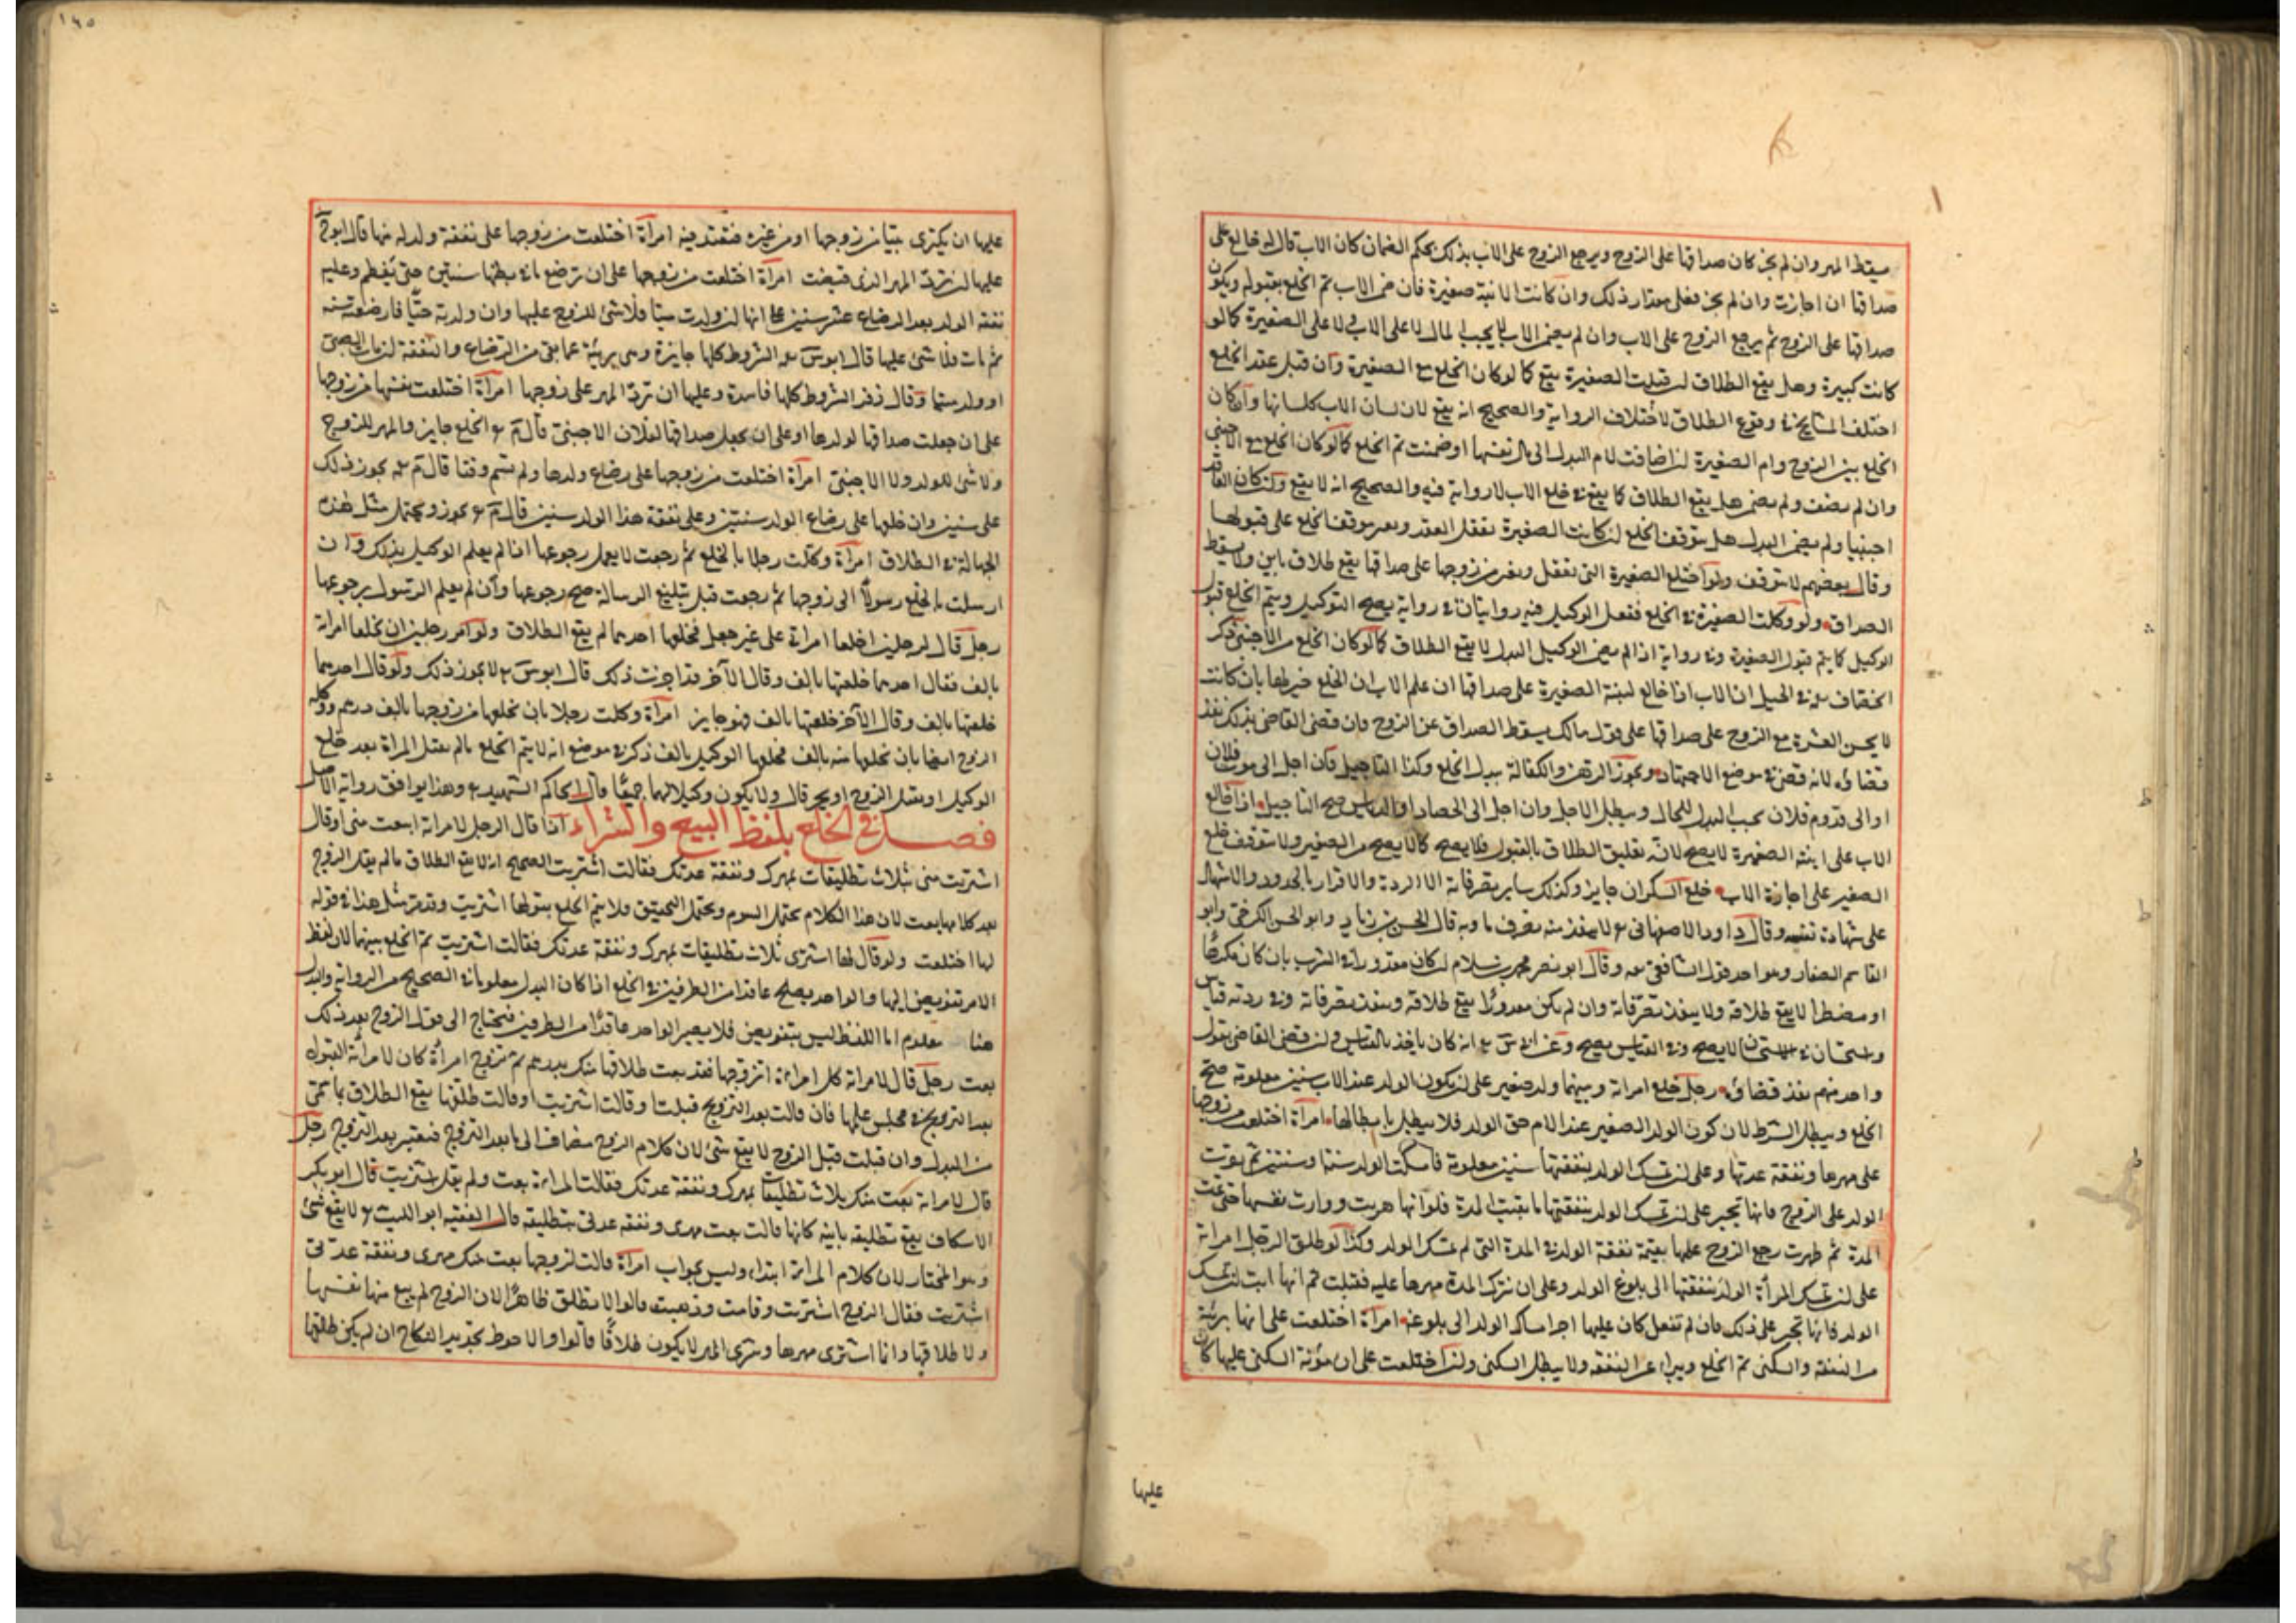 سقط المهر وان لم يجز كان صداقها على الزوج ويرجع الزوج على الاب بذلك بحكم الضمان كان الاب قال له خالع على
صداقها ان اجازت وان لم يجز فعلى مقدار ذلك وان كانت الابنة صغيرة فان ضمن الاب تم الخلع بقبوله ويكون
صداقها على الزوج ثم يرجع الزوج على الاب وان لم يضمن الاب لا يجب المال لا على الاب ولا على الصغيرة كما لو
كانت كبيرة وهل يقع الطلاق ان قبلت الصغيرة يقع كما لو كان الخلع مع الصغيرة وان قبل عقد الخلع
اختلف المشايخ في وقوع الطلاق لاختلاف الرواية والصحيح انه يقع لان لسان الاب كلسانها وان كان
الخلع بين الزوج وام الصغيرة ان اضافت الام البدل الى مال نفسها او ضمنت تم الخلع كما لو كان الخلع مع الاجنبي
وان لم تضف ولم تضمن هل يقع الطلاق كما يقع في خلع الاب لا رواية فيه والصحيح انه لا يقع وان كان العاقد
اجنبيا ولم يضمن البدل هل يتوقف الخلع ان كانت الصغيرة تعقل العقد وتعبر يتوقف الخلع على قبولها
وقال بعضهم لا يتوقف ولو اختلع الصغيرة التي تعقل وتعبر من زوجها على صداقها يقع طلاق باين ولا يسقط
الصداق ولو وكلت الصغيرة في الخلع ففعل الوكيل فيه روايتان في رواية يصح التوكيل ويتم الخلع بقبول
الوكيل كما يتم بقبول الصغيرة وفي رواية اذا لم يضمن الوكيل البدل لا يقع الطلاق كما لو كان الخلع من الاجنبي ذكر
الخصاف في الحيل ان الاب اذا خالع ابنته الصغيرة على صداقها ان علم الاب ان الخلع خير لها بان كانت
لا يحسن العشرة مع الزوج على صداقها على قول مالك يسقط الصداق عن الزوج وان قضى القاضي بذلك نفذ
قضاؤه لانه قضى في موضع الاجتهاد ويجوز الرهن والكفالة ببدل الخلع وكذا التاجيل وان اجل الى موت فلان
او الى قدوم فلان يجب البدل للحال ويبطل الاجل وان اجل الى الحصاد او الدياس صح التاجيل اذا خالع
الاب على ابنه الصغير لا يصح لانه تعليق الطلاق بالقبول فلا يصح كما لا يصح من الصغير ولا يتوقف خلع
الصغير على اجازة الاب خلع السكران جايز وكذلك ساير تصرفاته الا الردة والاقرار بالحدود والاشهاد
على شهادة نفسه وقال داود الاصفهاني لا ينفذ منه تصرف ما وبه قال الحسن بن زياد وابو الحسن الكرخي وابو
القاسم الصفار وهو احد قولي الشافعي وقال ابو نصر محمد بن سلام ان كان معذورا في الشرب بان كان مكرها
او مضطرا لا يقع طلاقه ولا ينفذ تصرفاته وان لم يكن معذورا يقع طلاقه وينفذ تصرفاته وفي ردته قياس
واستحسان في الاستحسان لا يصح وفي القياس يصح وعن ابي س انه كان ياخذ بالقياس وان قضى القاضي بقول
واحد منهم نفذ قضاؤه رجل خلع امراته وبينهما ولد صغير على ان يكون الولد عند الاب سنين معلومة صح
الخلع ويبطل الشرط لان كون الولد الصغير عند الام حق الولد فلا يبطل بابطالها امراة اختلعت من زوجها
على مهرها ونفقة عدتها وعلى ان تمسك الولد بنفقتها سنين معلومة فامسكت الولد سنة او سنتين ثم
الولد على الزوج فانها تجبر على ان تمسك الولد بنفقتها ما بقيت المدة فلو انها هربت ووارت نفسها حتى مضت
المدة ثم ظهرت رجع الزوج عليها بقيمة نفقة الولد في المدة التي لم تمسك الولد وكذا لو طلق الرجل امراته
على ان تمسك المرأة الولد بنفقتها الى بلوغ الولد وعلى ان تترك المدة مهرها عليه فقبلت ثم انها ابت ان تمسك
الولد فانها تجبر على ذلك فان لم تفعل كان عليها اجر امساك الولد الى بلوغه امراة اختلعت على انها بريئة
من النفقة والسكنى تم الخلع ويبراء عن النفقة ولا يبطل السكنى وان اختلعت على ان مؤنة السكنى عليها كان
عليها
١٤٥
عليها ان يكترى بيتا من زوجها او من غيره فتعتد فيه امرأة اختلعت من زوجها على نفقة ولد له منها قال ابو ح
عليها ان ترد المهر الذي قبضت امرأة اختلعت من زوجها على ان ترضع ما في بطنها سنتين حتى يفطم وعليه
نفقة الولد بعد الرضاع عشر سنين على انها ان ولدت ميتا فلا شئ للزوج عليها وان ولدته حيا فارضعته سنة
ثم مات فلا شئ عليها قال ابو س الشروط كلها جايزة وهي بريئة عما بقي من الرضاع والنفقة ان مات الصبي
او ولد ميتا وقال زفر الشروط كلها فاسدة وعليها ان ترد المهر على زوجها امرأة اختلعت نفسها من زوجها
على ان جعلت صداقها لولدها او على ان يجعل صداقها لفلان الاجنبي قال م الخلع جايز والمهر للزوج
ولا شئ للولد ولا الاجنبي امرأة اختلعت من زوجها على رضاع ولدها ولم تسم وقتا قال م يجوز ذلك
على سنين وان خلعها على رضاع الولد سنتين وعلى نفقة هذا الولد سنين قال م يجوز ويحتمل مثل هذه
الجهالة في الطلاق امرأة وكلت رجلا بالخلع ثم رجعت لا يعمل رجوعها اذا لم يعلم الوكيل بذلك وان
ارسلت بالخلع رسولا الى زوجها ثم رجعت قبل تبليغ الرسالة صح رجوعها وان لم يعلم الرسول برجوعها
رجل قال لرجلين اخلعا امراتي على غير جعل فخلعها احدهما لم يقع الطلاق ولو امر رجلين ان يخلعا امراته
بالف فقال احدهما خلعتها بالف وقال الآخر قد اجزت ذلك قال ابو س لا يجوز ذلك ولو قال احدهما
خلعتها بالف وقال الآخر خلعتها بالف فهو جايز امرأة وكلت رجلا بان يخلعها من زوجها بالف درهم ووكله
الزوج ايضا بان يخلعها منه بالف فخلعها الوكيل بالف ذكر في موضع انه لا يتم الخلع ما لم يقبل المراة بعد خلع
الوكيل او يقبل الزوج او يجز قال ولا يكون وكيلا لهما جميعا قال الحاكم الشهيد وهذا يوافق رواية الاصل
فصل في الخلع بلفظ البيع والشراء اذا قال الرجل لامراته ابتعت مني او قال
اشتريت مني ثلاث تطليقات بمهرك ونفقة عدتك فقالت اشتريت الصحيح انه لا يقع الطلاق ما لم يقل الزوج
بعد كلامها بعت لان هذا الكلام يحتمل السوم ويحتمل التحقيق فلا يتم الخلع بقولها اشتريت وقد مر مثل هذا في قوله
لها اختلعت ولو قال لها اشتري ثلاث تطليقات بمهرك ونفقة عدتك فقالت اشتريت تم الخلع بينهما لان لفظ
الامر تفويض اليها والواحد يصلح عاقدا من الطرفين في الخلع اذا كان البدل معلوما في الصحيح من الرواية والبدل
هنا معلوم اما اللفظ ليس بتفويض فلا يصير الواحد عاقدا من الطرفين فتحتاج الى قول الزوج بعد ذلك
بعت رجل قال لامراته كل امراة اتزوجها فقد بعت طلاقها منك بدرهم ثم تزوج امرأة كان لامرأته القبول
بعد التزويج في مجلس علمها فان قالت بعد التزويج قبلت او قالت اشتريت او قالت طلقتها يقع الطلاق بما سمى
من البدل وان قبلت قبل الزوج لا يقع شئ لان كلام الزوج مضاف الى ما بعد التزوج فتعتبر بعد التزوج رجل
قال لامراته بعت منك بثلاث تطليقات بمهرك ونفقة عدتك فقالت المراة بعت ولم يقل اشتريت قال ابو بكر
الاسكاف يقع تطليقة باينة كانها قالت بعت مهري ونفقة عدتي بتطليقة قال الفقيه ابو الليث لا يقع شئ
وهو المختار لان كلام المراة ابتداء وليس بجواب امراة قالت لزوجها بعت منك مهري ونفقة عدتي
اشتريت فقال الزوج اشتريت وقامت وذهبت قالوا لا تطلق ظاهرا لان الزوج لم يبع منها نفسها
ولا طلاقها وانما اشترى مهرها وشرى المهر لا يكون طلاقا قالوا والاحوط تجديد النكاح ان لم يكن طلقها